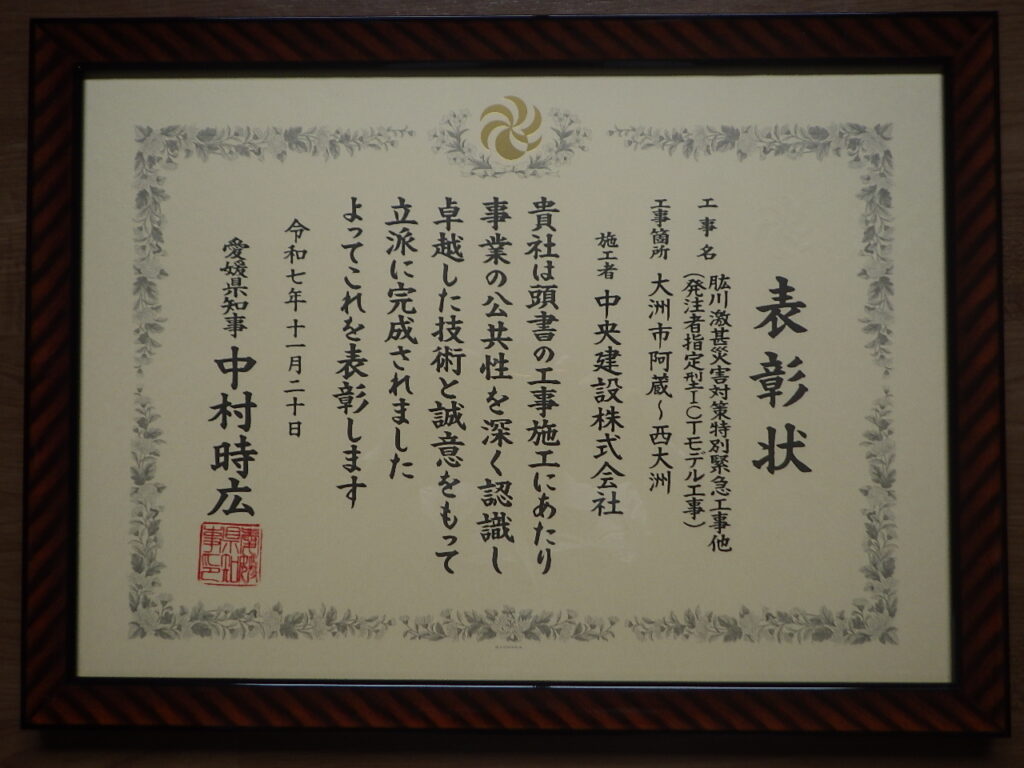 表彰状
工事名 肱川激甚災害対策特別緊急工事他
(発注者指定型ICTモデル工事)
工事箇所 大洲市阿蔵~西大洲
施工者 中央建設株式会社
貴社は頭書の工事施工にあたり
事業の公共性を深く認識し
卓越した技術と誠意をもって
立派に完成されました
よってこれを表彰します
令和七年十一月二十日
愛媛県知事 中村時広
愛媛県知事印